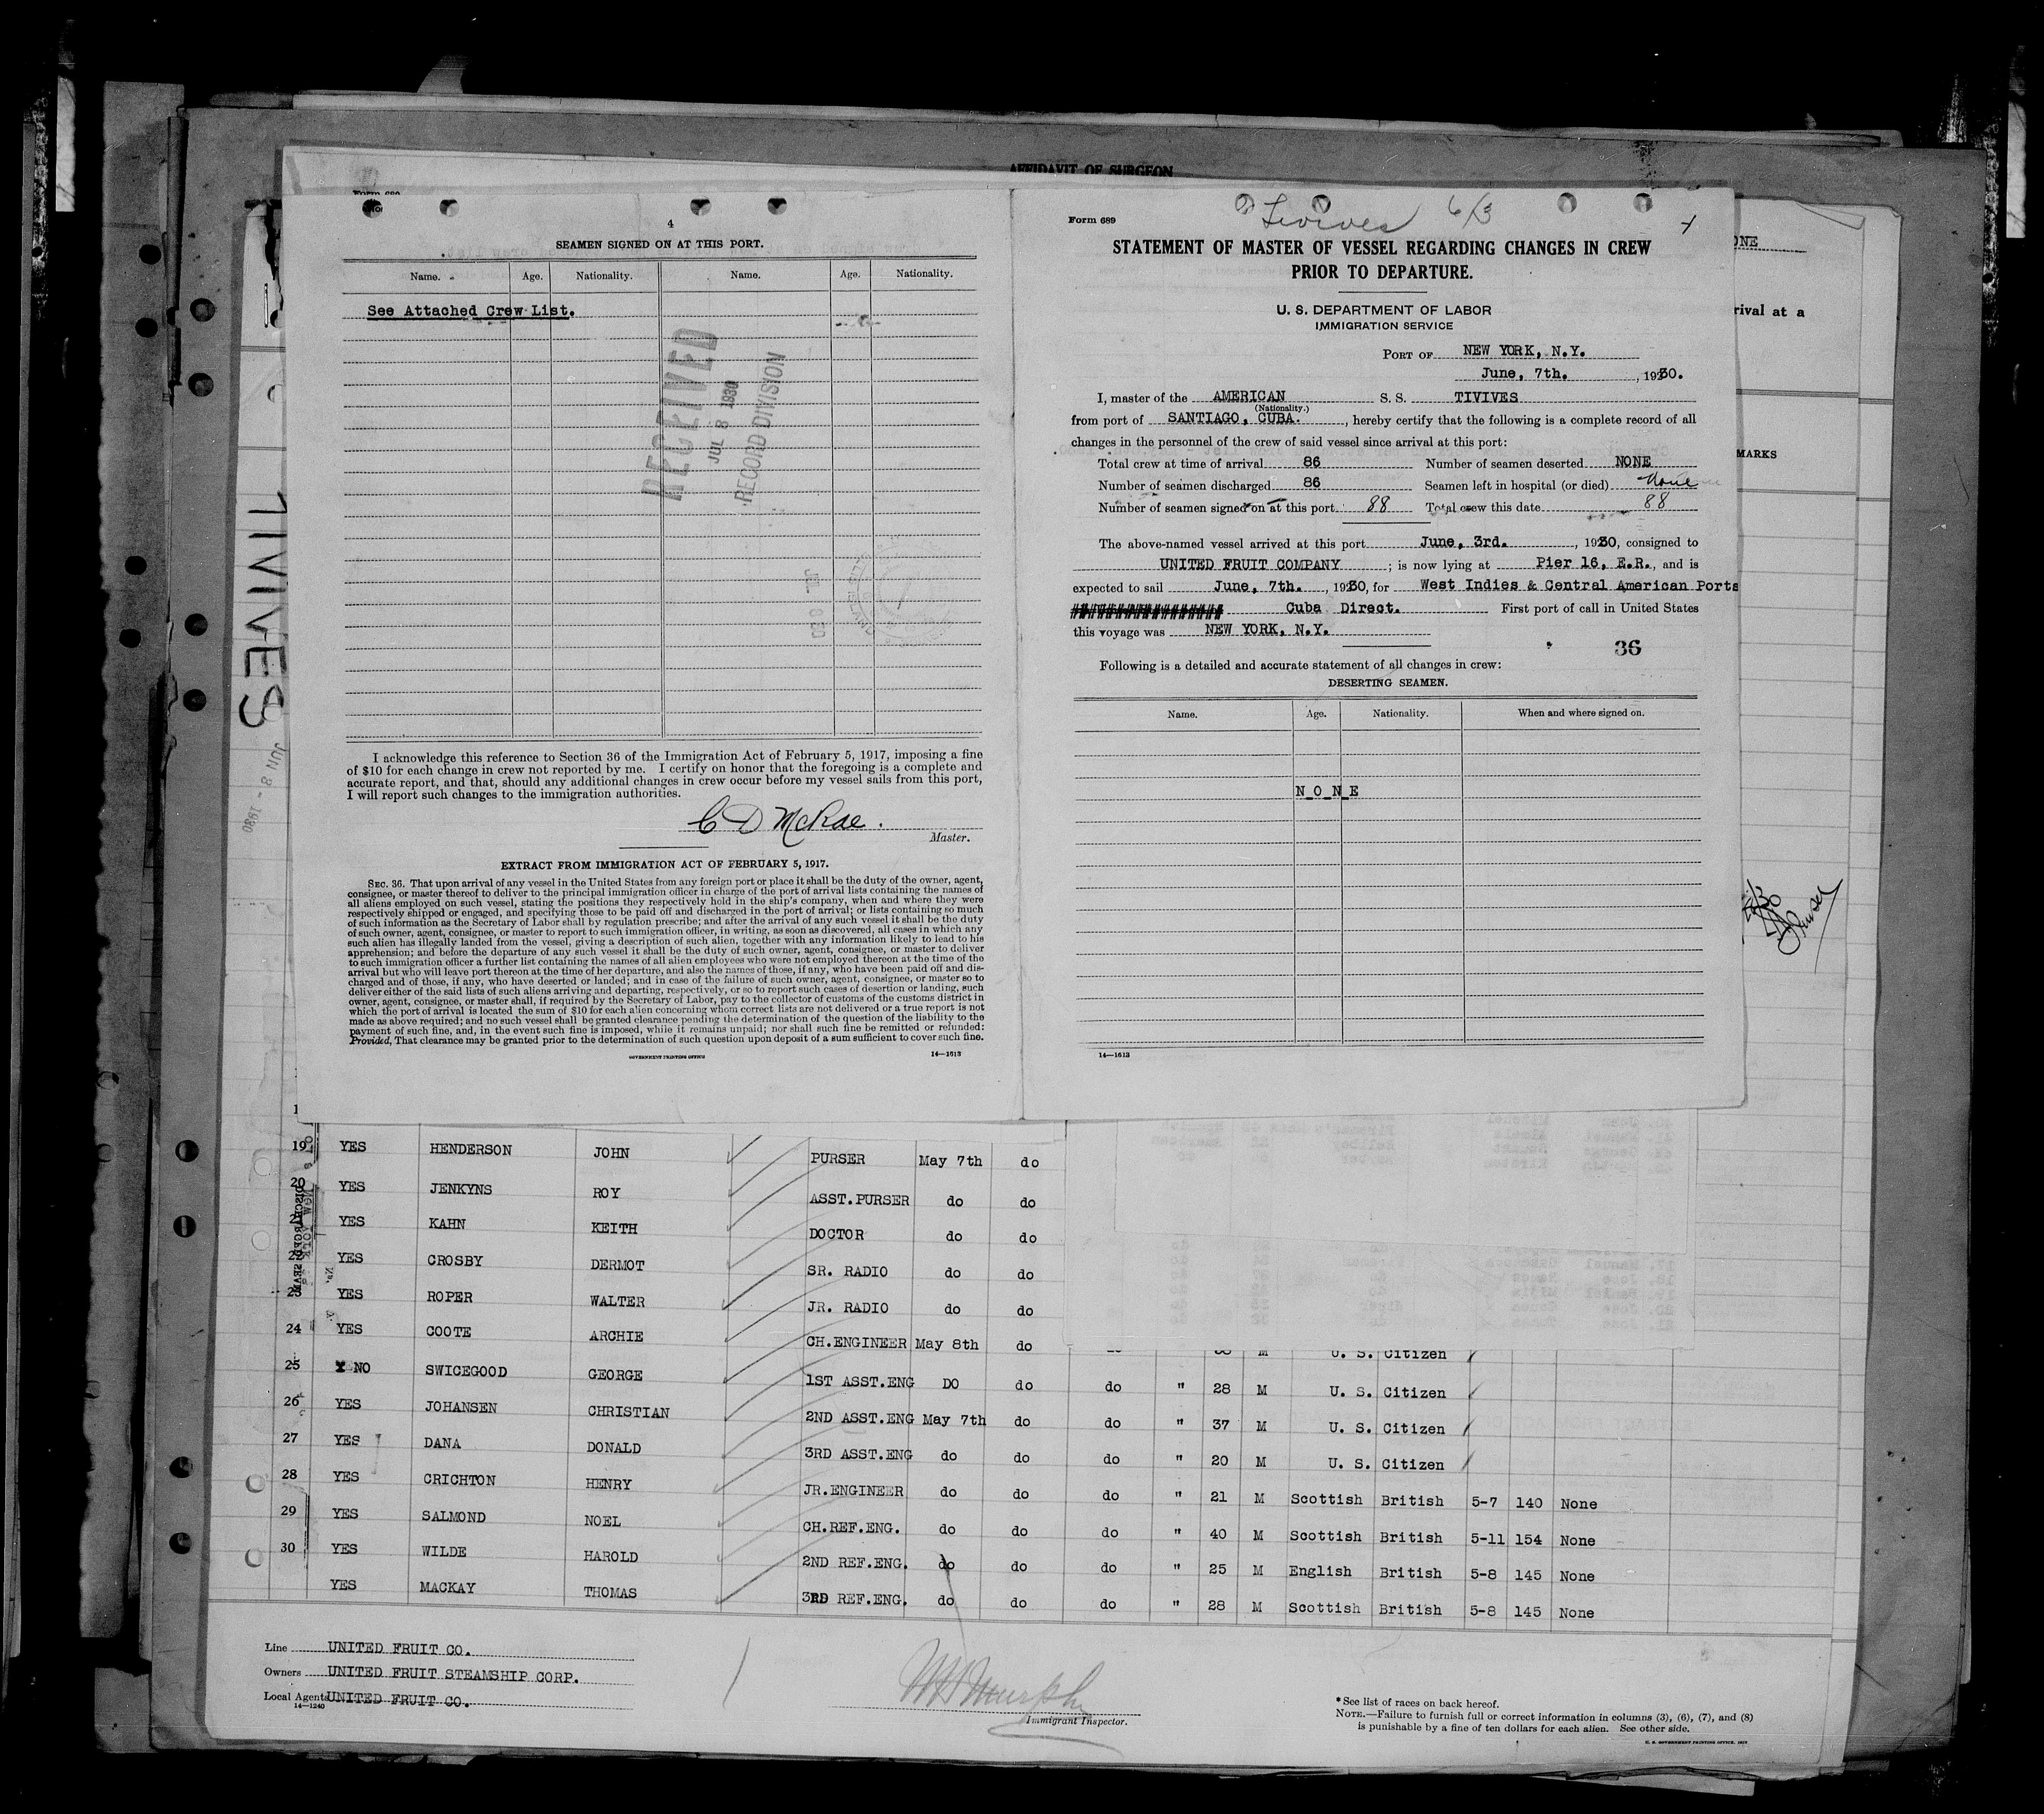 AFFIDAVIT OF SURGEON
4
SEAMEN SIGNED ON AT THIS PORT.
Name. Age. Nationality. Name. Age. Nationality.
See Attached Crew List.
RECEIVED
JUL 8 1930
RECORD DIVISION
I acknowledge this reference to Section 36 of the Immigration Act of February 5, 1917, imposing a fine
of $10 for each change in crew not reported by me. I certify on honor that the foregoing is a complete and
accurate report, and that, should any additional changes in crew occur before my vessel sails from this port,
I will report such changes to the immigration authorities.
C D McRae.
Master.
EXTRACT FROM IMMIGRATION ACT OF FEBRUARY 5, 1917.
SEC. 36. That upon arrival of any vessel in the United States from any foreign port or place it shall be the duty of the owner, agent,
consignee, or master thereof to deliver to the principal immigration officer in charge of the port of arrival lists containing the names of
all aliens employed on such vessel, stating the positions they respectively hold in the ship's company, when and where they were
respectively shipped or engaged, and specifying those to be paid off and discharged in the port of arrival; or lists containing so much
of such information as the Secretary of Labor shall by regulation prescribe; and after the arrival of any such vessel it shall be the duty
of such owner, agent, consignee, or master to report to such immigration officer, in writing, as soon as discovered, all cases in which any
such alien has illegally landed from the vessel, giving a description of such alien, together with any information likely to lead to his
apprehension; and before the departure of any such vessel it shall be the duty of such owner, agent, consignee, or master to deliver
to such immigration officer a further list containing the names of all alien employees who were not employed thereon at the time of the
arrival but who will leave port thereon at the time of her departure, and also the names of those, if any, who have been paid off and dis-
charged and of those, if any, who have deserted or landed; and in case of the failure of such owner, agent, consignee, or master so to
deliver either of the said lists of such aliens arriving and departing, respectively, or so to report such cases of desertion or landing, such
owner, agent, consignee, or master shall, if required by the Secretary of Labor, pay to the collector of customs of the customs district in
which the port of arrival is located the sum of $10 for each alien concerning whom correct lists are not delivered or a true report is not
made as above required; and no such vessel shall be granted clearance pending the determination of the question of the liability to the
payment of such fine, and, in the event such fine is imposed, while it remains unpaid; nor shall such fine be remitted or refunded:
Provided, That clearance may be granted prior to the determination of such question upon deposit of a sum sufficient to cover such fine.
GOVERNMENT PRINTING OFFICE 14—1613
Form 689
Tivives 6/3
STATEMENT OF MASTER OF VESSEL REGARDING CHANGES IN CREW
PRIOR TO DEPARTURE.
U. S. DEPARTMENT OF LABOR
IMMIGRATION SERVICE
PORT OF NEW YORK, N.Y.
June, 7th. , 1930.
I, master of the AMERICAN S. S. TIVIVES
(Nationality.)
from port of SANTIAGO, CUBA. , hereby certify that the following is a complete record of all
changes in the personnel of the crew of said vessel since arrival at this port:
Total crew at time of arrival 86 Number of seamen deserted NONE
Number of seamen discharged 86 Seamen left in hospital (or died) None
Number of seamen signed on at this port 88 Total crew this date 88
The above-named vessel arrived at this port June, 3rd. , 1930, consigned to
UNITED FRUIT COMPANY ; is now lying at Pier 16, E.R., and is
expected to sail June, 7th. , 1930, for West Indies & Central American Ports
Cuba Direct. First port of call in United States
this voyage was NEW YORK, N.Y.
36
Following is a detailed and accurate statement of all changes in crew:
DESERTING SEAMEN.
Name. Age. Nationality. When and where signed on.
N O N E
14—1613
ONE
rival at a
MARKS
TIVIVES
JUN 8 - 1930
19 YES HENDERSON JOHN PURSER May 7th do
20 YES JENKYNS ROY ASST.PURSER do do
21 YES KAHN KEITH DOCTOR do do
22 YES CROSBY DERMOT SR. RADIO do do
23 YES ROPER WALTER JR. RADIO do do
24 YES COOTE ARCHIE CH.ENGINEER May 8th do U. S. Citizen
25 NO SWICEGOOD GEORGE 1ST ASST.ENG DO do do " 28 M U. S. Citizen
26 YES JOHANSEN CHRISTIAN 2ND ASST.ENG May 7th do do " 37 M U. S. Citizen
27 YES DANA DONALD 3RD ASST.ENG do do do " 20 M U. S. Citizen
28 YES CRICHTON HENRY JR.ENGINEER do do do " 21 M Scottish British 5-7 140 None
29 YES SALMOND NOEL CH.REF.ENG. do do do " 40 M Scottish British 5-11 154 None
30 YES WILDE HAROLD 2ND REF.ENG. do do do " 25 M English British 5-8 145 None
YES MACKAY THOMAS 3RD REF.ENG. do do do " 28 M Scottish British 5-8 145 None
Line UNITED FRUIT CO.
Owners UNITED FRUIT STEAMSHIP CORP.
Local Agents UNITED FRUIT CO.
14—1240
Murphy
Immigrant Inspector.
* See list of races on back hereof.
NOTE.—Failure to furnish full or correct information in columns (3), (6), (7), and (8)
is punishable by a fine of ten dollars for each alien. See other side.
U. S. GOVERNMENT PRINTING OFFICE